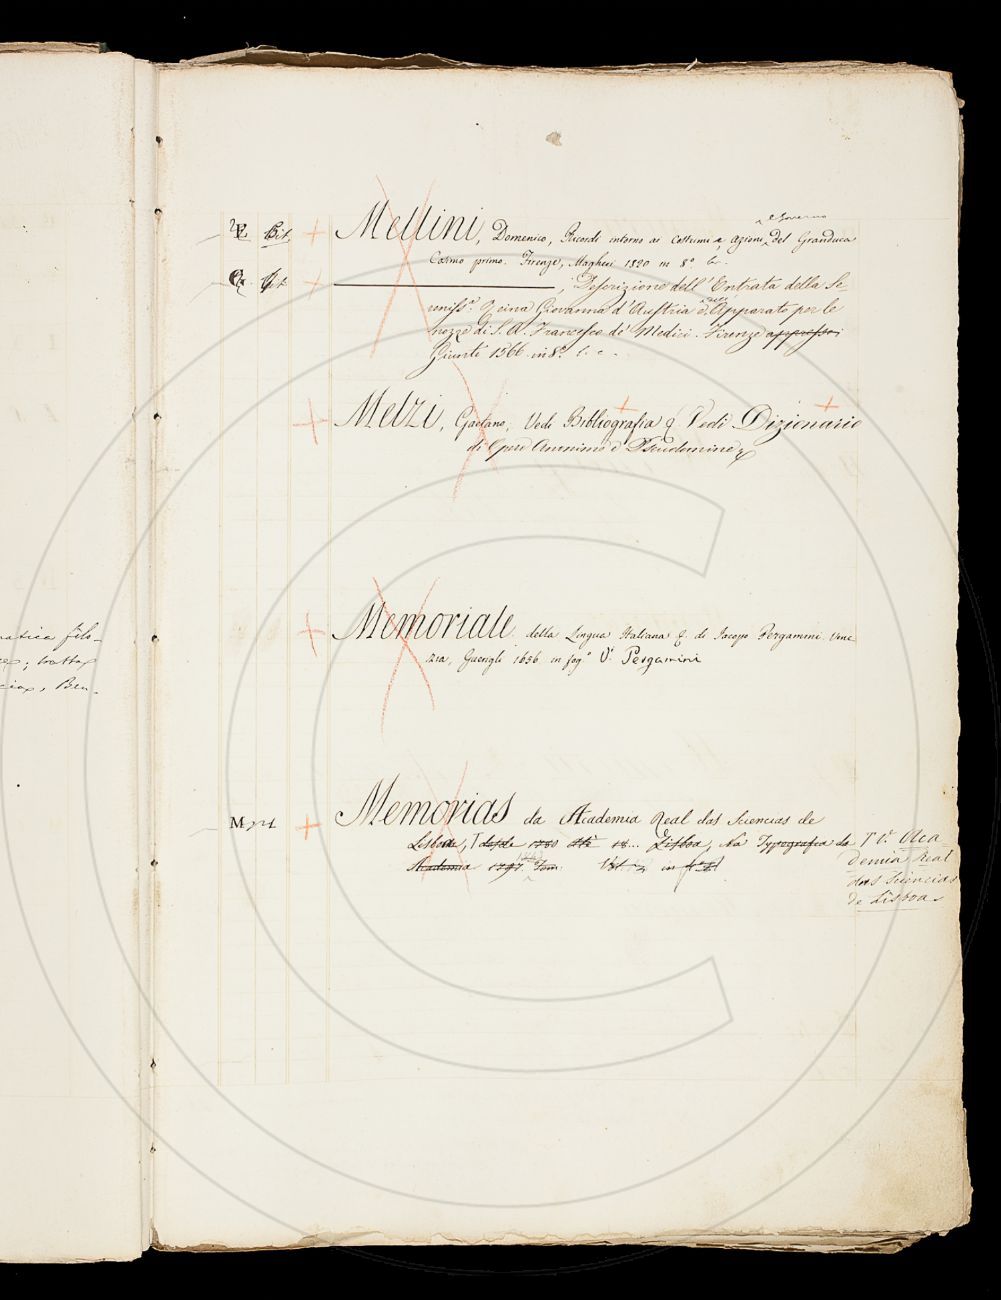 e Governo
Mellini, Domenico, Ricordi intorno ai Costumi e azioni del Granduca
Cosmo primo. Firenze, Magheri 1820 in 8.º
, Descrizione dell'Entrata della Se-
reniss.ª Reina Giovanna d'Austria e Apparato per le
nozze di S. A. Francesco de' Medici. Firenze appresso i
Giunti 1566. in 8.º
Melzi, Gaetano, Vedi Bibliografia & Vedi Dizionario
di Opere Anonime e Pseudonime
Memoriale della Lingua Italiana & di Jacopo Pergamini Vene
zia, Guerigli 1656 in fog.º V. Pergamini
M
Memorias da Academia Real das Sciencias de
Lisboa, desde 1780 até 18... Lisboa, Na Typografia da
Academia 1797. Tom. in
V. Aca-
demia Real
das Sciencias
de Lisboa
matica filo-
; tratta
, Ben-